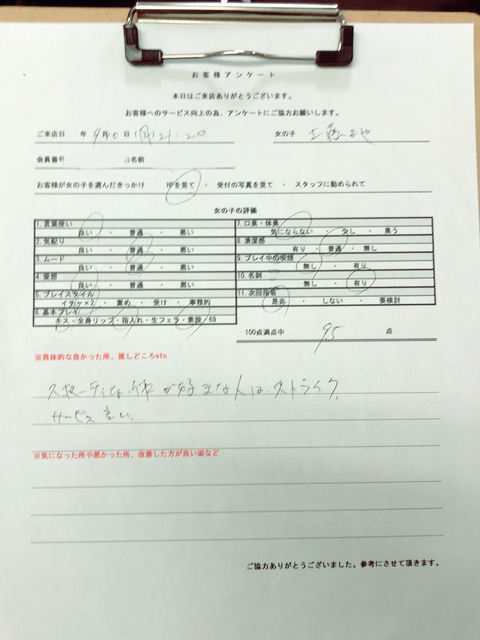 お客様アンケート
本日はご来店ありがとうございます。
お客様へのサービス向上の為、アンケートにご協力お願いします。
ご来店日 年 9月 日 21:20 女の子
会員番号 お名前
お客様が女の子を選んだきっかけ HPを見て ・ 受付の写真を見て ・ スタッフに勧められて
女の子の評価
1.言葉使い
良い ・ 普通 ・ 悪い
2.気配り
良い ・ 普通 ・ 悪い
3.ムード
良い ・ 普通 ・ 悪い
4.愛想
良い ・ 普通 ・ 悪い
5.プレイスタイル
イチャ×2 ・ 責め ・ 受け ・ 事務的
6.基本プレイ
キス・全身リップ・指入れ・生フェラ・素股・69
7.口臭・体臭
気にならない ・ 少し ・ 臭う
8.清潔感
有り ・ 普通 ・ 無し
9.プレイ中の喫煙
無し ・ 有り
10.名刺
無し ・ 有り
11.次回指名
是非 ・ しない ・ 要検討
100点満点中 95 点
※具体的な良かった所、推しどころetc
スポーティな体が好きな人は、ストライク。
サービス良い。
※気になった所や悪かった所、改善した方が良い面など
ご協力ありがとうございました。参考にさせて頂きます。